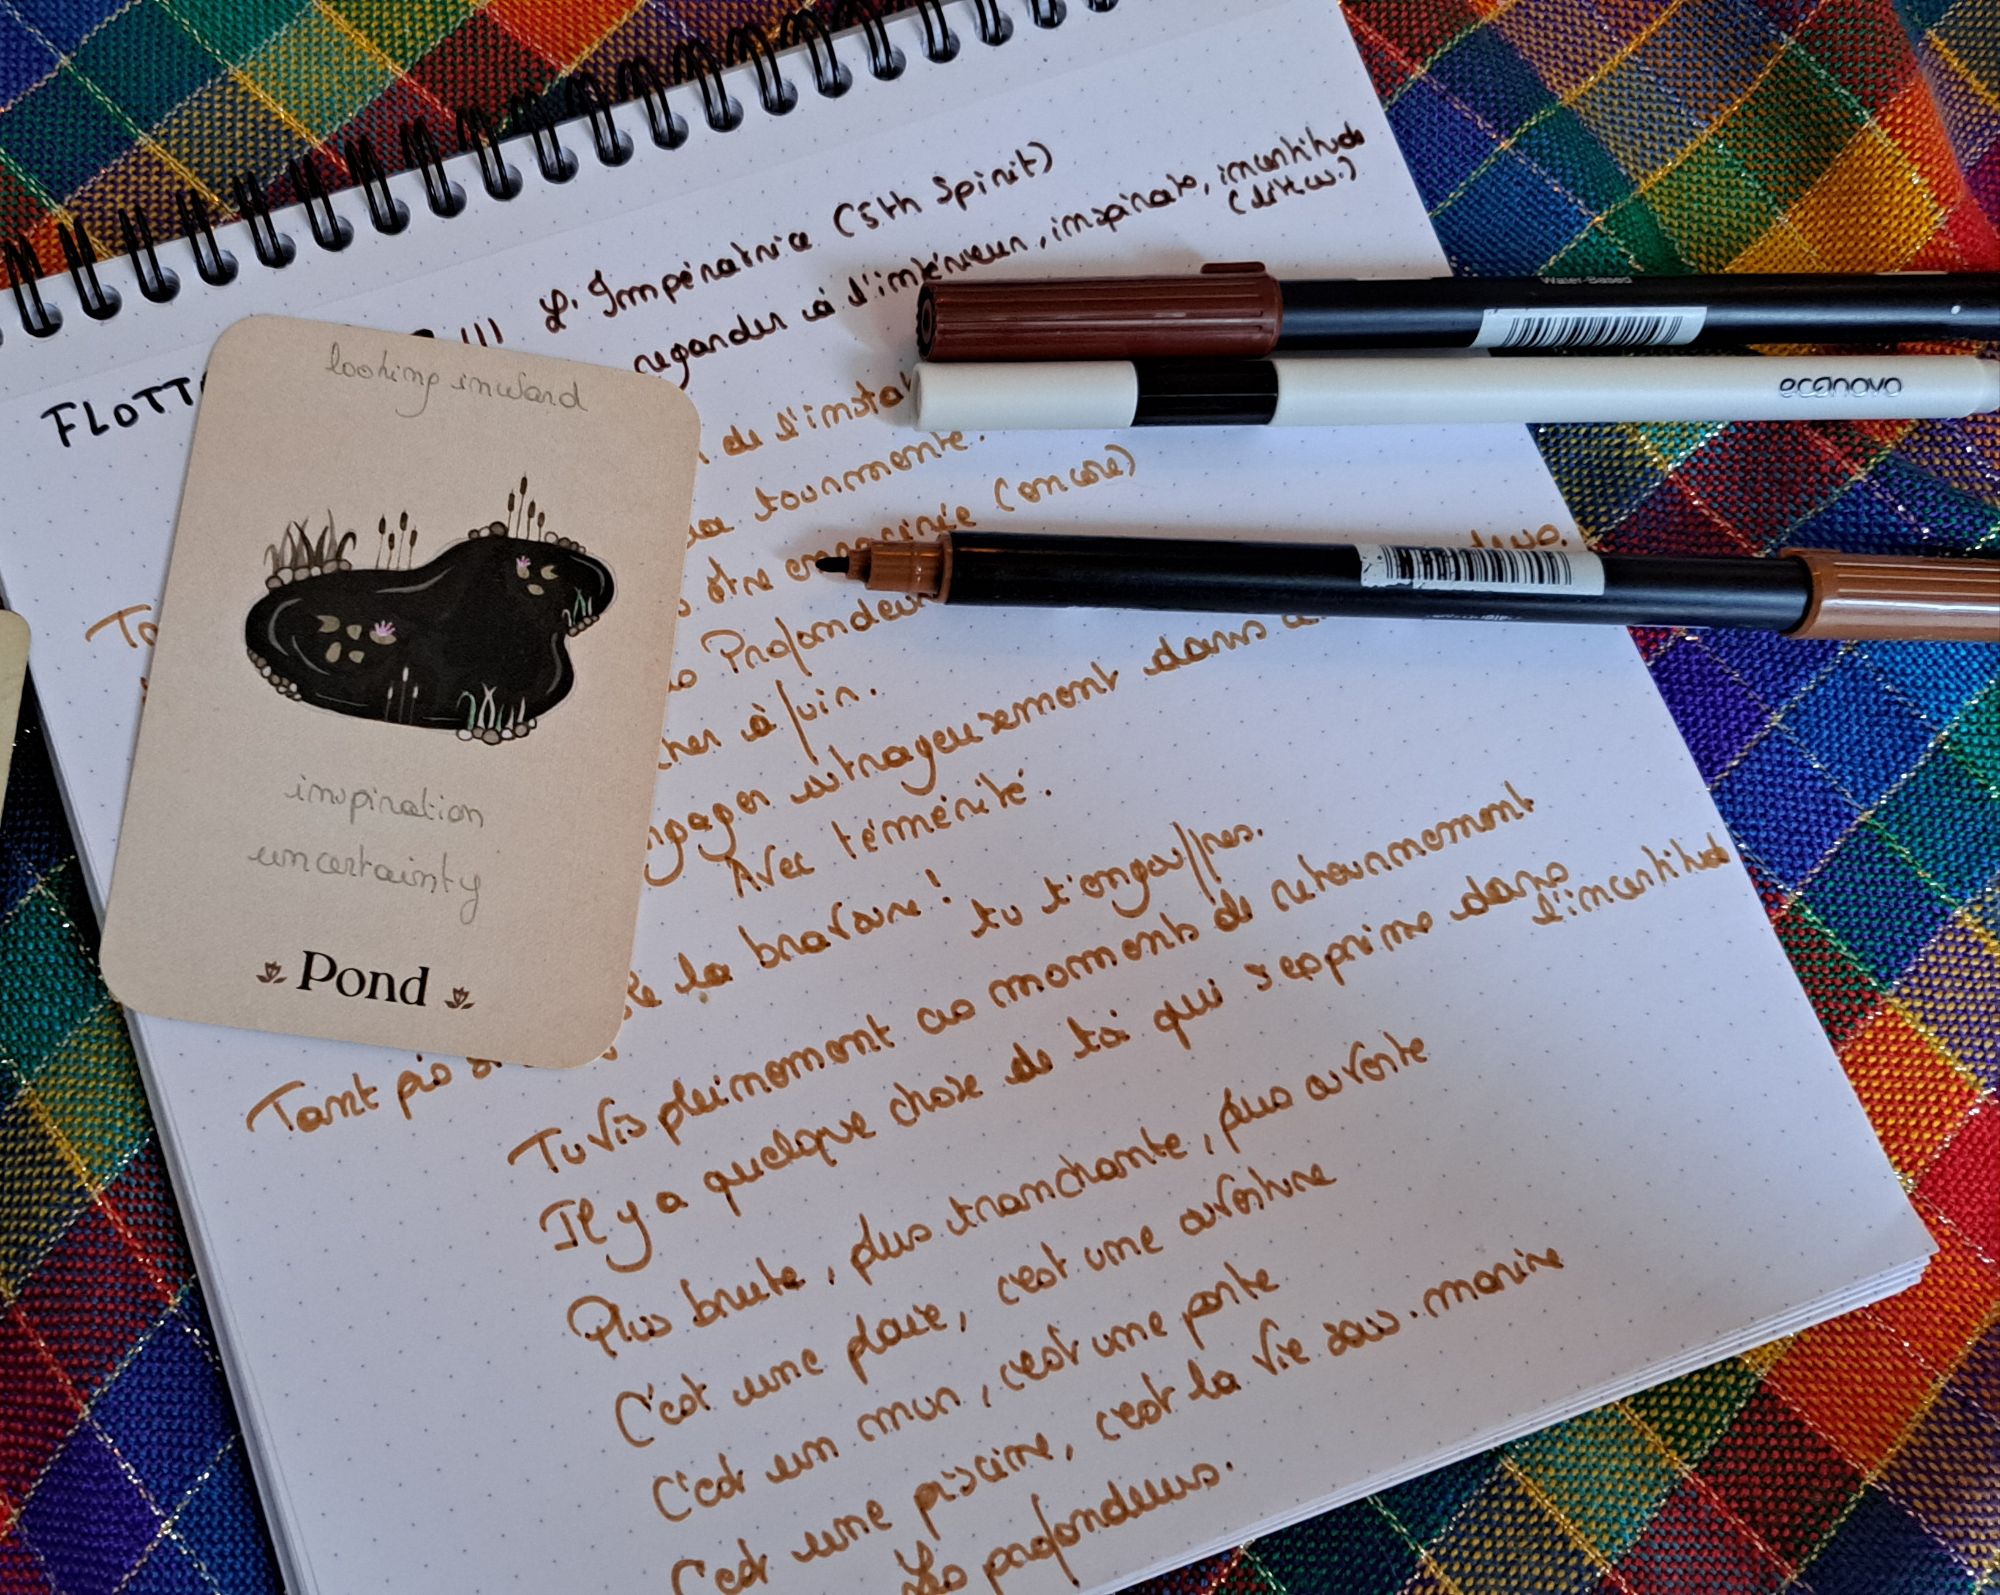 L'Impératrice (5th Spirit)
FLOTT
regarder à l'intérieur, inspirato, incertitude
de l'insta
tourmente.
être enracinée (encore)
Profondeur
à fuir.
ngager outrageusement dans
Avec témérité.
la bravoure! tu t'engouffres.
Tant pis
Tu vis pleinement ces moments de retournement
Il y a quelque chose de toi qui s'exprime dans
l'incertitude
Plus brute, plus tranchante, plus ouverte
C'est une plaie, c'est une ouverture
C'est un mur, c'est une porte
C'est une piscine, c'est la vie sous-marine
Les profondeurs.
looking inward
inspiration
uncertainty
Pond
Water-Based
econovo